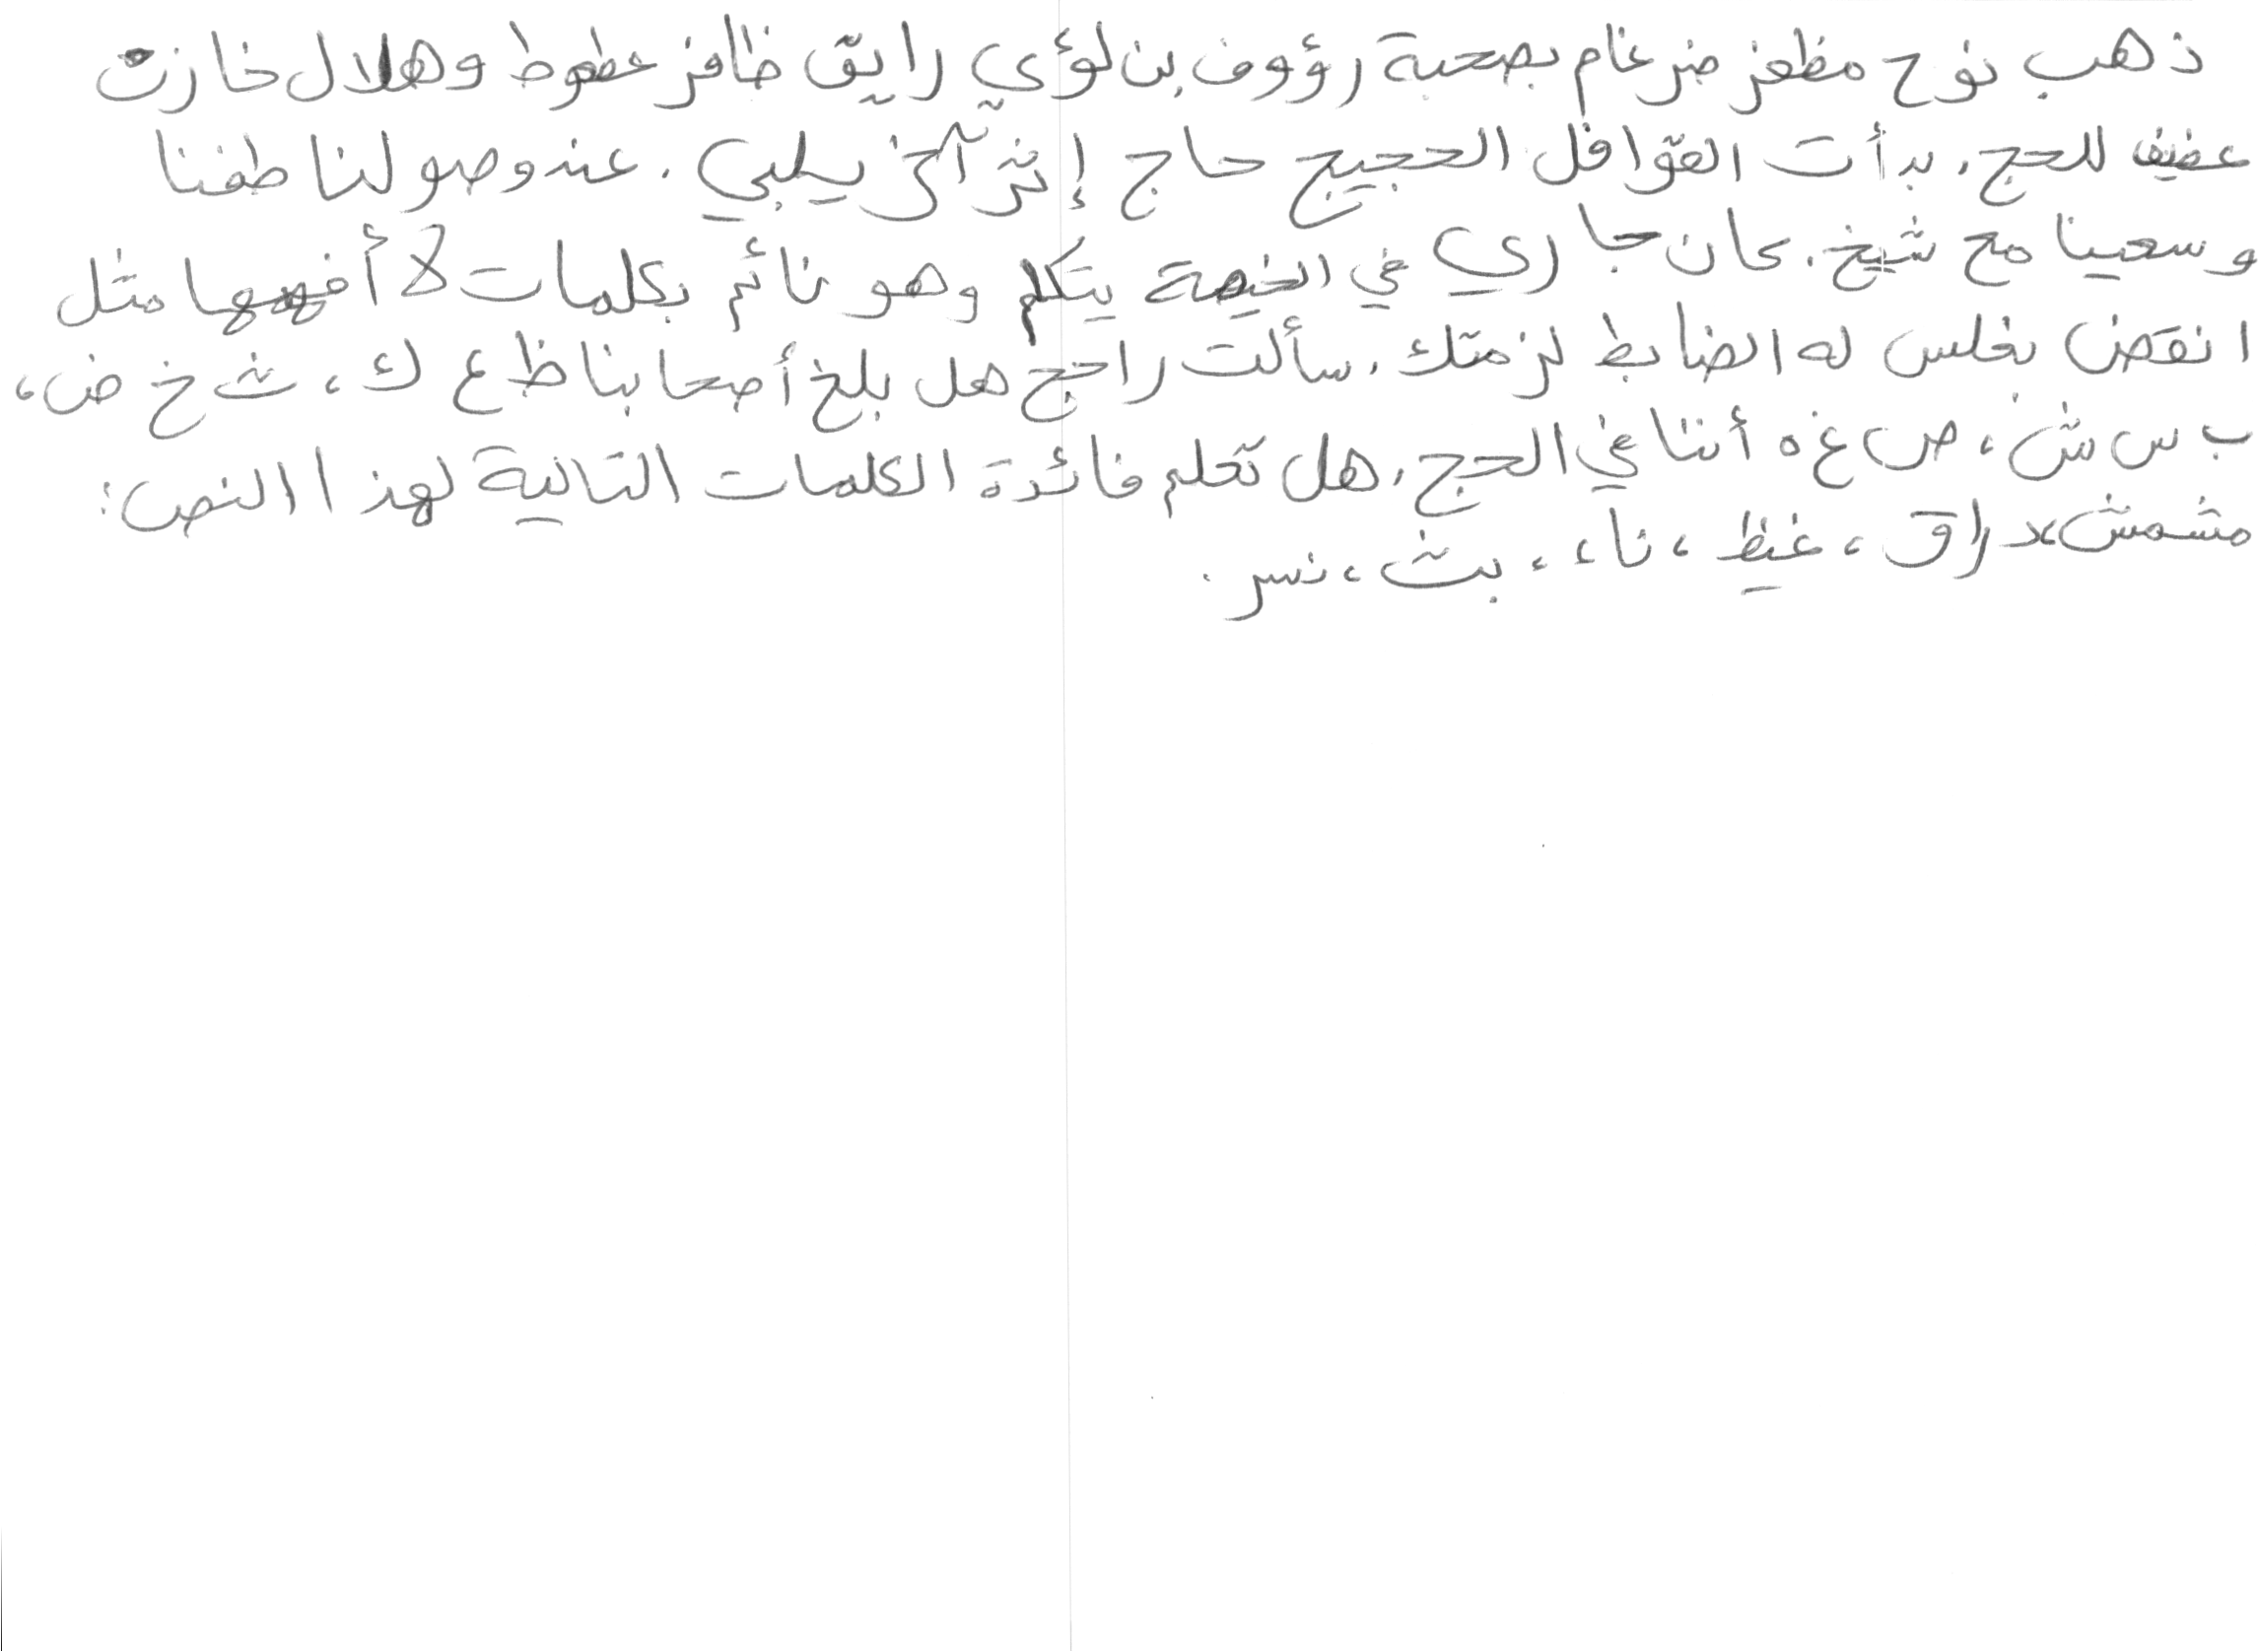 ذهب نوح مظفر ضرغام بصحبة رؤوف بن لؤي رايق ظافر عطعوط وهلال خازن
عفيف للحج. بدأت القوافل الحجيج حاج إثر آخر يلبي. عند وصولنا طفنا
وسعينا مع شيخ. كان جاري في الخيمة يتكلم وهو نائم بكلمات لا أفهمها مثل
انقض بغلس له الضابط لزمتك. سألت راجح هل بلغ أصحابنا ظ ع ك، ث خ ض،
ب س ش، ص غ ه أننا في الحج. هل تعلم فائدة الكلمات التالية لهذا النص:
مشمش، راق، غيظ، ناء، بث، نسر.